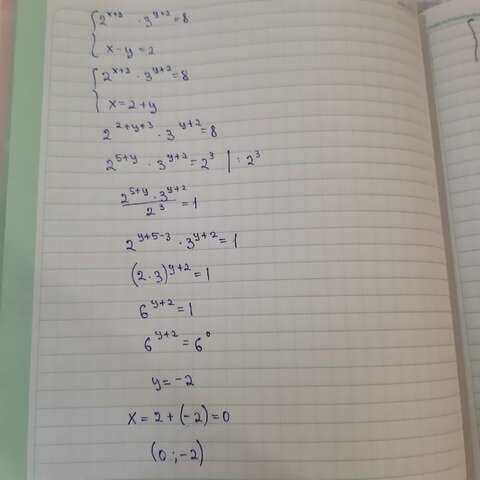 { 2^{x+3} · 3^{y+2} = 8
x - y = 2
{ 2^{x+3} · 3^{y+2} = 8
x = 2 + y
2^{2+y+3} · 3^{y+2} = 8
2^{5+y} · 3^{y+2} = 2^3 | : 2^3
\frac{2^{5+y} · 3^{y+2}}{2^3} = 1
2^{y+5-3} · 3^{y+2} = 1
(2 · 3)^{y+2} = 1
6^{y+2} = 1
6^{y+2} = 6^0
y = -2
x = 2 + (-2) = 0
(0 ; -2)